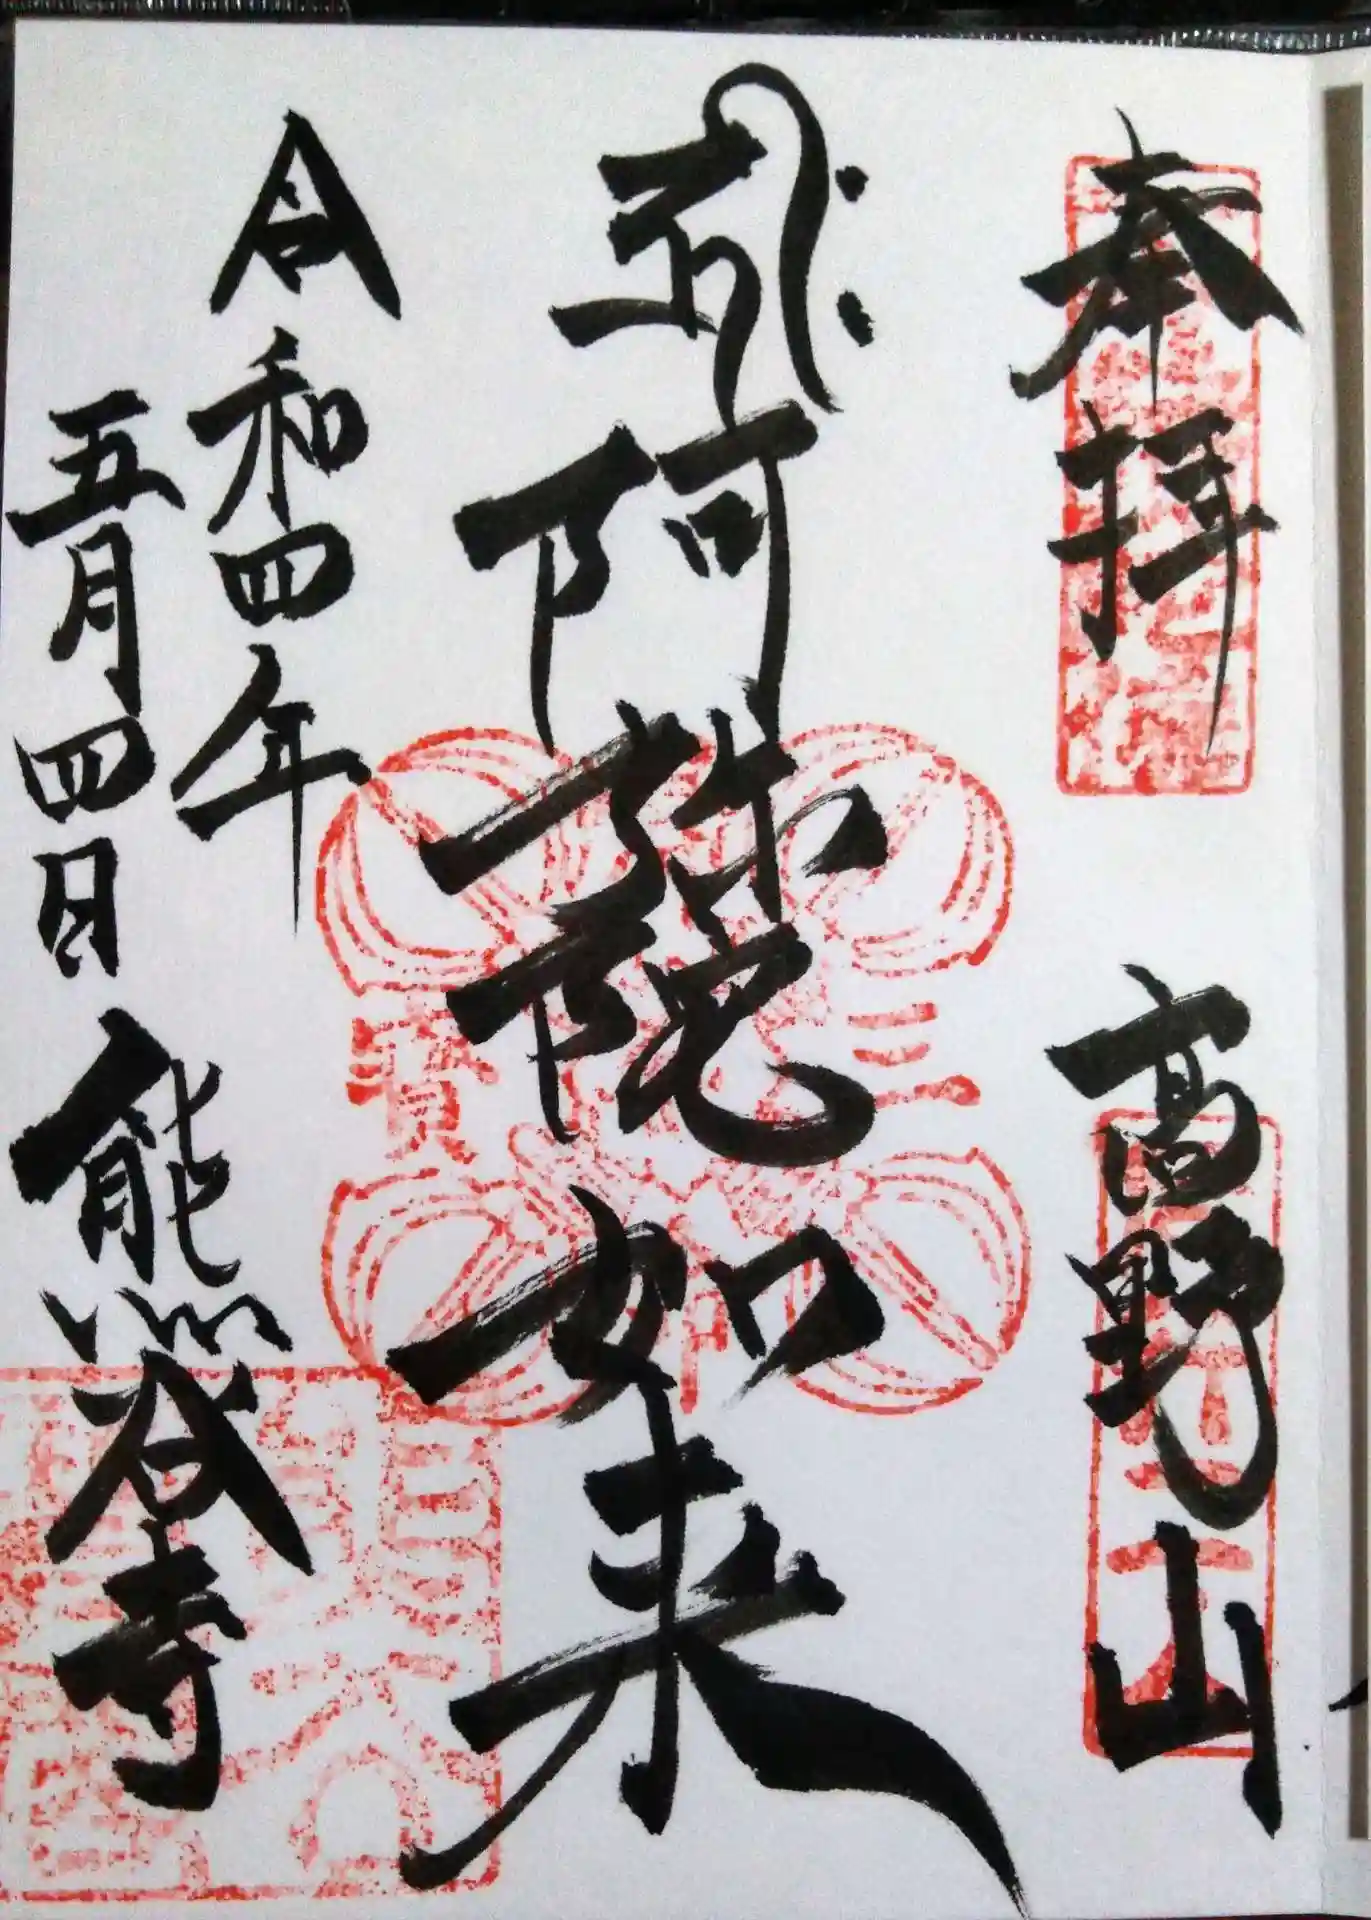 奉拝
高野山
𑖮𑖿𑖨𑖱𑖾 阿弥陀如来
三寳
令和四年
五月四日
熊谷寺